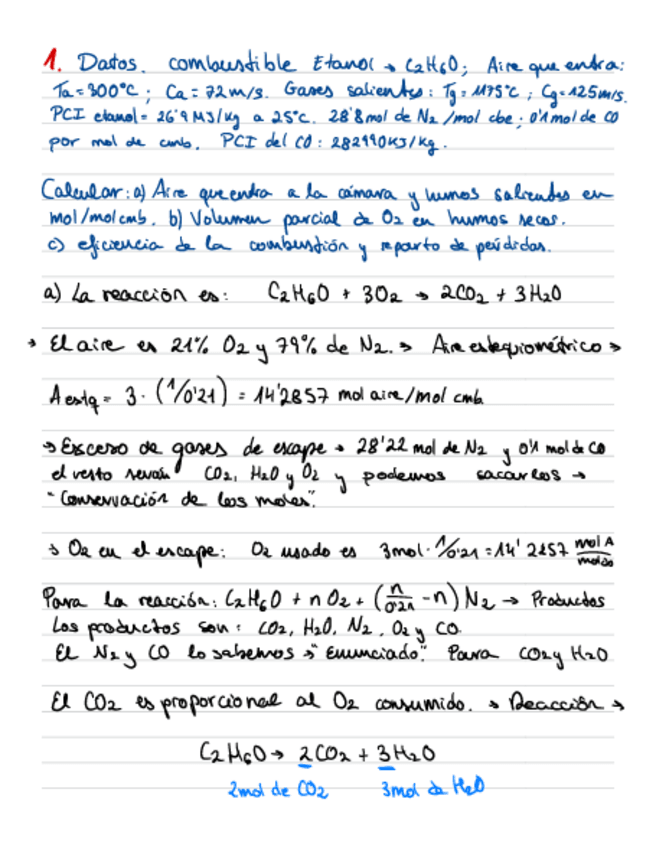 1. Datos. combustible Etanol → C2H6O; Aire que entra:
Ta = 300°C; Ca = 72 m/s. Gases salientes: Tg = 1175°C; Cg = 125 m/s.
PCI etanol = 26'9 MJ/kg a 25°C. 28'8 mol de N2/mol cbe; 0'1 mol de CO
por mol de cmb. PCI del CO: 282990 KJ/kg.
Calcular: a) Aire que entra a la cámara y humos salientes en
mol/mol cmb. b) Volumen parcial de O2 en humos secos.
c) eficiencia de la combustión y reparto de pérdidas.
a) La reacción es: C2H6O + 3O2 → 2CO2 + 3H2O
→ El aire es 21% O2 y 79% de N2. → Aire estequiométrico →
A estq = 3 · (1/0'21) = 14'2857 mol aire/mol cmb
→ Exceso de gases de escape → 28'22 mol de N2 y 0'1 mol de CO
el resto serán CO2, H2O y O2 y podemos sacarlos →
"Conservación de los moles".
→ O2 en el escape: O2 usado es 3mol · 1/0'21 = 14'2857 mol A
Para la reacción: C2H6O + n O2 + (n/0'21 - n) N2 → Productos
Los productos son: CO2, H2O, N2, O2 y CO
El N2 y CO lo sabemos → "Enunciado". Para CO2 y H2O
El CO2 es proporcional al O2 consumido. → Reacción →
C2H6O → 2CO2 + 3H2O
2mol de CO2 3mol de H2O